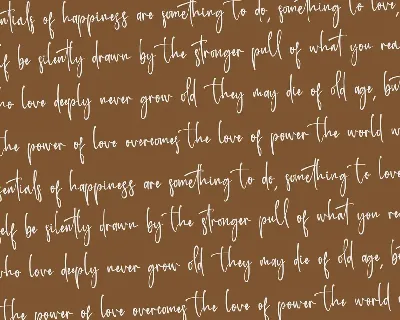 ntials of happiness are something to do, something to love,
lf be silently drawn by the stronger pull of what you rea
ho love deeply never grow old they may die of old age, but
the power of love overcomes the love of power the world w
sentials of happiness are something to do, something to love
elf be silently drawn by the stronger pull of what you re
who love deeply never grow old they may die of old age, b
the power of love overcomes the love of power the world